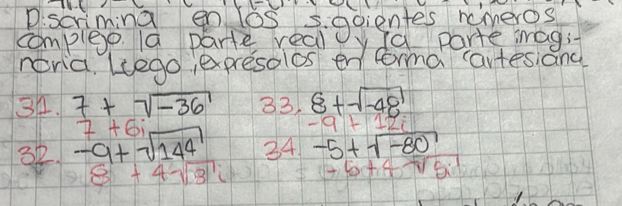 Discrimina en los sigoientes números
complejo la parte real y la parte imagi-
naria. Luego, exprésalos en forma cartesiana
31. 7 + √-36 33. 8+√-48
7 +6i -9 + 12i
32. -9+√144 34. -5+√-80
8 + 4√3i -5+4√5i